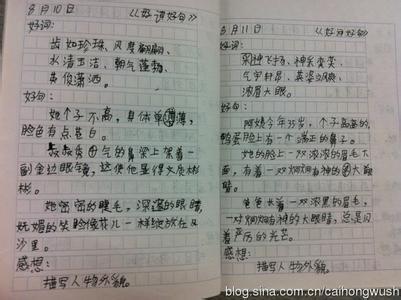 8月10日 《好词好句》
好词:
齿如珍珠、风度翩翩、
水清玉洁、朝气蓬勃、
英俊潇洒。
好句:
她个子不高,身体单薄,
脸色有点苍白。
叔叔秀气的鼻梁上架着一
副金边眼镜,这使他显得文质彬
彬。
她密密的睫毛,深邃的眼睛,
妩媚的笑脸像花儿一样绽放在
沙里。
感想:
描写人物外貌。
8月11日 《好词好句》
好词:
眉神飞扬、神采奕奕、
气宇轩昂、英姿飒爽、
浓眉大眼。
好句:
阿姨今年35岁,个子高高的,
鸭蛋脸上有一个端正的鼻子。
她的脸上一双浓浓的眉毛下
面,有着一双炯炯有神的大眼
睛。
爸爸长着一双浓黑的眉毛,
一对炯炯有神的大眼睛,总是闪
着严厉的光芒。
感想:
描写人物外貌。
blog.sina.com.cn/caihongwush